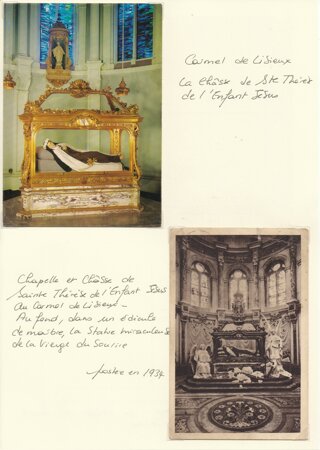 Carmel de Lisieux
La Châsse de Ste Thérèse
de l'Enfant Jésus
Chapelle et Châsse de
Sainte Thérèse de l'Enfant Jésus
au Carmel de Lisieux -
Au fond, dans un édicule
de marbre, la Statue miraculeuse
de la Vierge du Sourire
postée en 1934